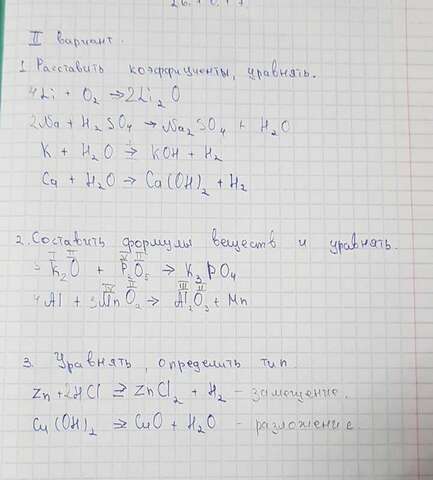 II вариант.
1. Расставить коэффициенты, уравнять.
4Li + O₂ → 2Li₂O
2Na + H₂SO₄ → Na₂SO₄ + H₂O
K + H₂O → KOH + H₂
Ca + H₂O → Ca(OH)₂ + H₂
2. Составить формулы веществ и уравнять.
I II V II
3 K₂O + P₂O₅ → K₃PO₄
IV II III II
4Al + 3MnO₂ → Al₂O₃ + Mn
3. Уравнять, определить тип.
Zn + 2HCl ⇒ ZnCl₂ + H₂ - замещение.
Cu(OH)₂ ⇒ CuO + H₂O - разложение